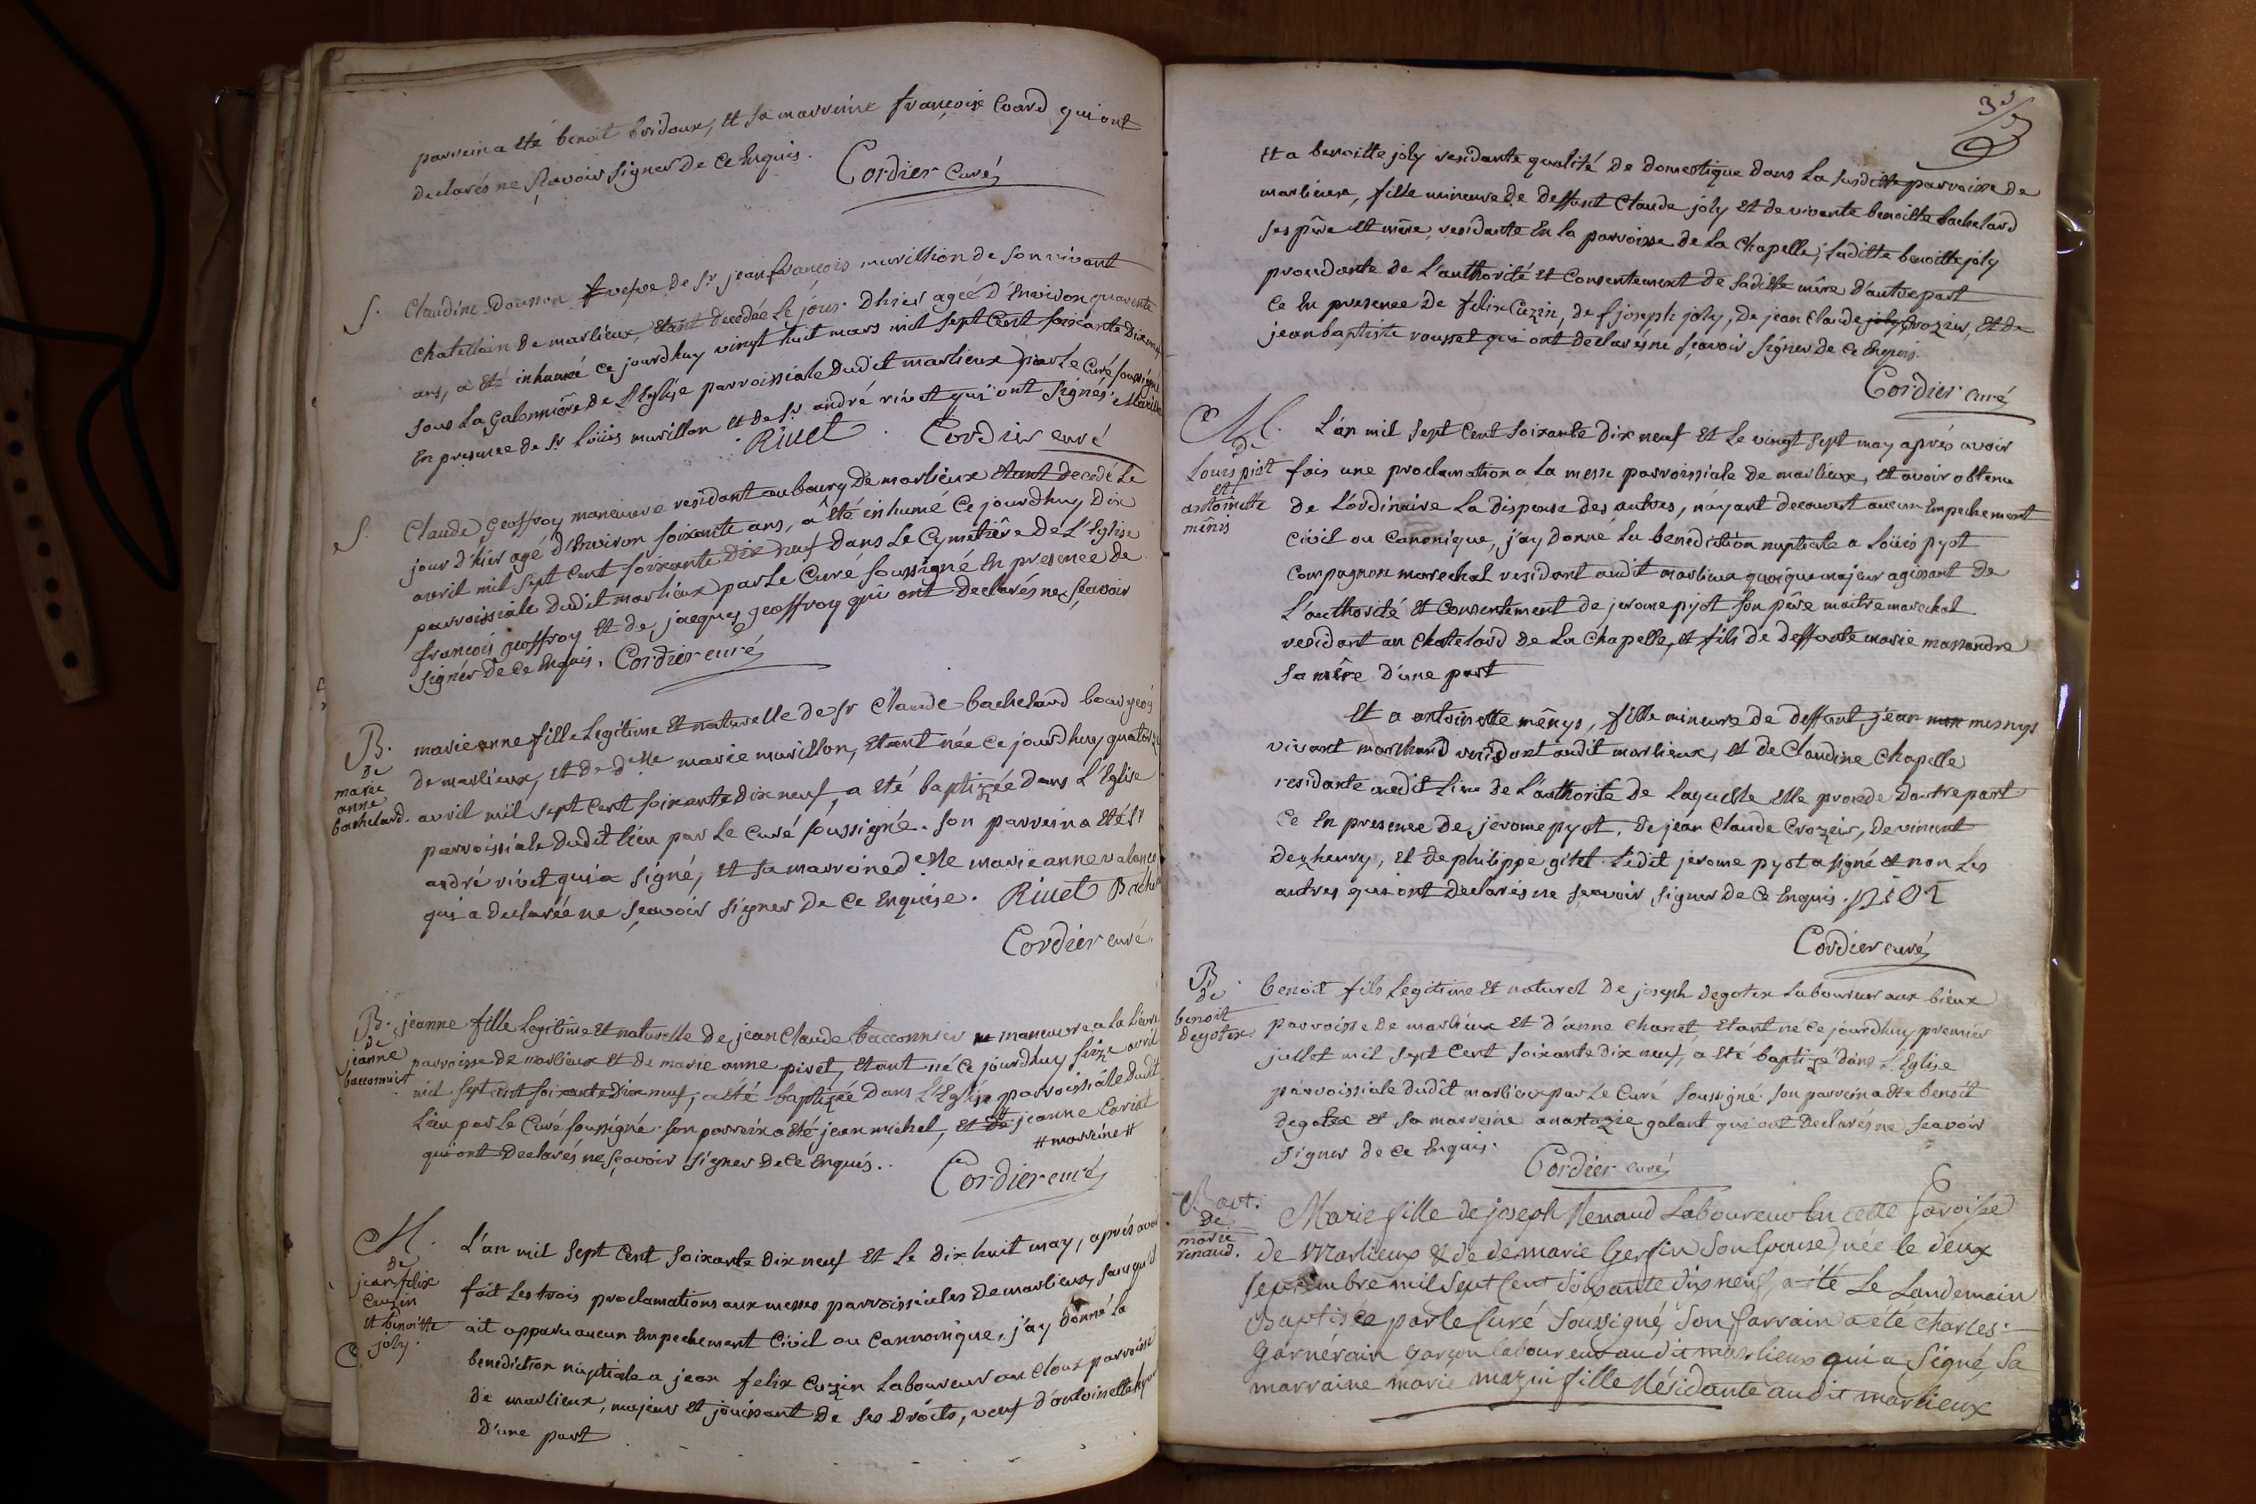 parrein a eté benoit bridoux, et sa marreine françoise Coard qui ont
declarés ne sçavoir signer de ce Enquis. Cordier Curé
S. Claudine Dousson veuve de Sr jean françois marillion de son vivant
Chatellain de marlieux, etant decedée Le jour d'hier ageé d'Environ quarante
ans, a eté inhumée ce jourdhuy vingt huit mars mil sept Cent soixante Dix neuf
sous La Galonniere de L'Eglise parroissiale dudit marlieux par Le Curé soussigné
En presence de Sr Loüis marillon et de Sr andré rivet qui ont signés.
Rivet Cordier curé
S. Claude Geoffroy maneuvre residant au bourg de marlieux etant decedé Le
jour d'hier agé d'Environ soixante ans, a été inhumé ce jourdhuy Dix
avril mil sept cent soixante Dix neuf dans Le Cymetiere de L'Eglise
parroissiale dudit marlieux par Le Curé soussigné En presence de
françois geoffroy et de jacques geoffroy qui ont declarés ne sçavoir
signer de ce Enquis. Cordier curé
B. de marie anne bachelard.
marie anne fille Legitime et naturelle de Sr Claude bachelard bourgeois
de marlieux, et de delle marie marillon, etant née ce jourdhuy quatorze
avril mil sept cent soixante dix neuf, a eté baptizée dans L'Eglise
parroissiale dudit Lieu par Le Curé soussigné. son parrein a eté Sr
andré rivet qui a signé, et sa marreine delle marie anne valence
qui a declarée ne sçavoir signer de ce Enquise. Rivet
Cordier curé.
B. de jeanne baconnier
jeanne fille Legitime et naturelle de jean Claude baconnier maneuvre a La
parroisse de marlieux et de marie anne pivet, etant né ce jourdhuy seize avril
mil sept cent soixante dix neuf, a eté baptizée dans L'Eglise parroissiale dudit
Lieu par Le Curé soussigné. son parrein a eté jean michel, et jeanne Cariat
# marreine #
qui ont declarés ne sçavoir signer de ce Enquis.
Cordier curé
M. de jean felix Cuzin et benoitte joly.
L'an mil sept cent soixante dix neuf et Le dix huit may, après avoir
fait Les trois proclamations aux messes parroissiales de marlieux, sans qu'il
ait apparu aucun Empechement Civil ou Cannonique, j'ay donné La
benediction nuptiale a jean felix Cuzin Laboureur au Clouz parroisse
de marlieux, majeur et jouissant de ses droits, veuf d'antoinette
d'une part
Et a benoitte joly residante qualité de domestique dans La susditte parroisse de
marlieux, fille mineure de deffunt Claude joly et de vivante benoitte bachelard
ses père et mère, residante En la parroisse de La Chapelle; Laditte benoitte joly
procedante de L'authorité et Consentement de saditte mère d'autre part
Ce En presence de felix Cuzin, de joseph joly, de jean Claude Crozier, et de
jean baptiste rousset qui ont declarés ne sçavoir signer de ce Enquis.
Cordier curé
M. de Louis piot et antoinette mênis
L'an mil sept cent soixante dix neuf et Le vingt sept may après avoir
fais une proclamation a La messe parroissiale de marlieux, et avoir obtenu
de L'ordinaire La dispense des autres, n'ayant decouvert aucun Empechement
Civil ou Canonique, j'ay donné La benediction nuptiale a Loüis pyot
Compagnon marechal residant audit marlieux quoique majeur agissant de
L'authorité et Consentement de jerome pyot son père maitre marechal
residant au Chatelard de La Chapelle, et fils de deffunte marie massandre
sa mère d'une part
Et a antoinette mênys, fille mineure de deffunt jean mesnys
vivant marchand residant audit marlieux, et de Claudine Chapelle
residante audit Lieu de L'authorité de Laquelle elle procede d'autre part
Ce En presence de jerome pyot, de jean Claude Crozier, de vincent
dezhenry, et de philippe gitel. Ledit jerome pyot a signé et non Les
autres qui ont declarés ne sçavoir signer de ce Enquis. piot
Cordier curé
B. de benoit degotex
benoit fils Legitime et naturel de joseph degotex Laboureur aux bieux
parroisse de marlieux et d'anne Chanet, etant né ce jourdhuy premier
jullet mil sept cent soixante dix neuf, a eté baptizé dans L'Eglise
parroissiale dudit marlieux par Le Curé soussigné. son parrein a ete benoit
degotex et sa marreine anastazie galant qui ont declarés ne sçavoir
signer de ce Enquis. Cordier curé
Bapt. de marie renaud.
Marie fille de joseph Renaud Laboureur En cette Paroisse
de Marlieux & de marie Gerfin son Epouse, née le deux
septembre mil sept cent soixante dix neuf, a été Le Landemain
Baptisée par le Curé soussigné, son parrain a été charles
Garnérain garçon laboureur audit marlieux qui a signé, sa
marraine marie mazui fille Résidante audit marlieux